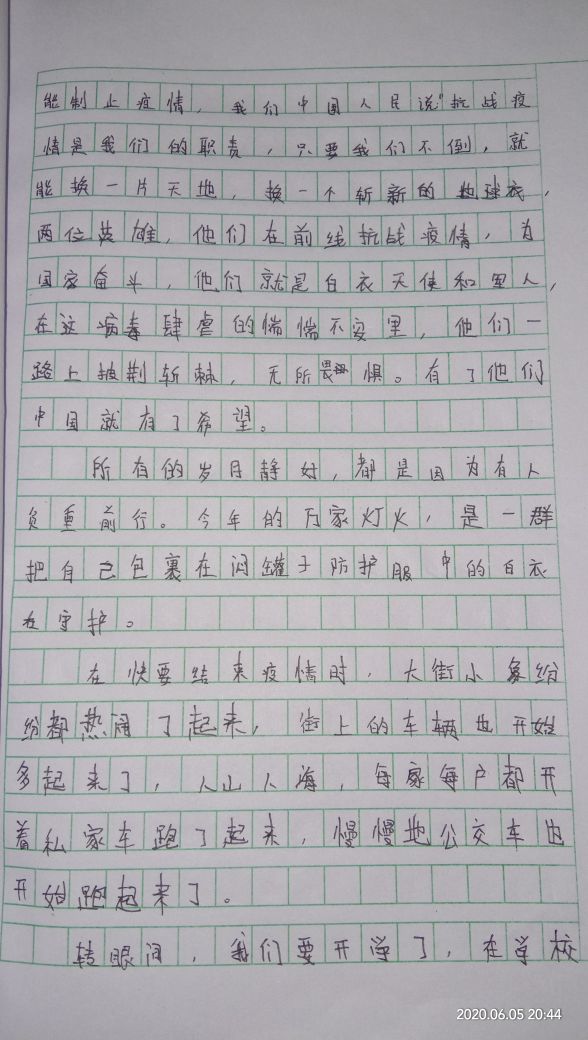 能制止疫情，我们中国人民说"抗战疫
情是我们的职责，只要我们不倒，就
能换一片天地，换一个斩新的地球衣，
两位英雄，他们在前线抗战疫情，为
国家奋斗，他们就是白衣天使和军人，
在这病毒肆虐的惴惴不安里，他们一
路上披荆斩棘，无所畏惧。有了他们
中国就有了希望。
所有的岁月静好，都是因为有人
负重前行。今年的万家灯火，是一群
把自己包裹在闷罐子防护服中的白衣
在守护。
在快要结束疫情时，大街小象纷
纷都热闹了起来，街上的车辆也开始
多起来了，人山人海，每家每户都开
着私家车跑了起来，慢慢地公交车也
开始跑起来了。
转眼间，我们要开学了，在学校
2020.06.05 20:44